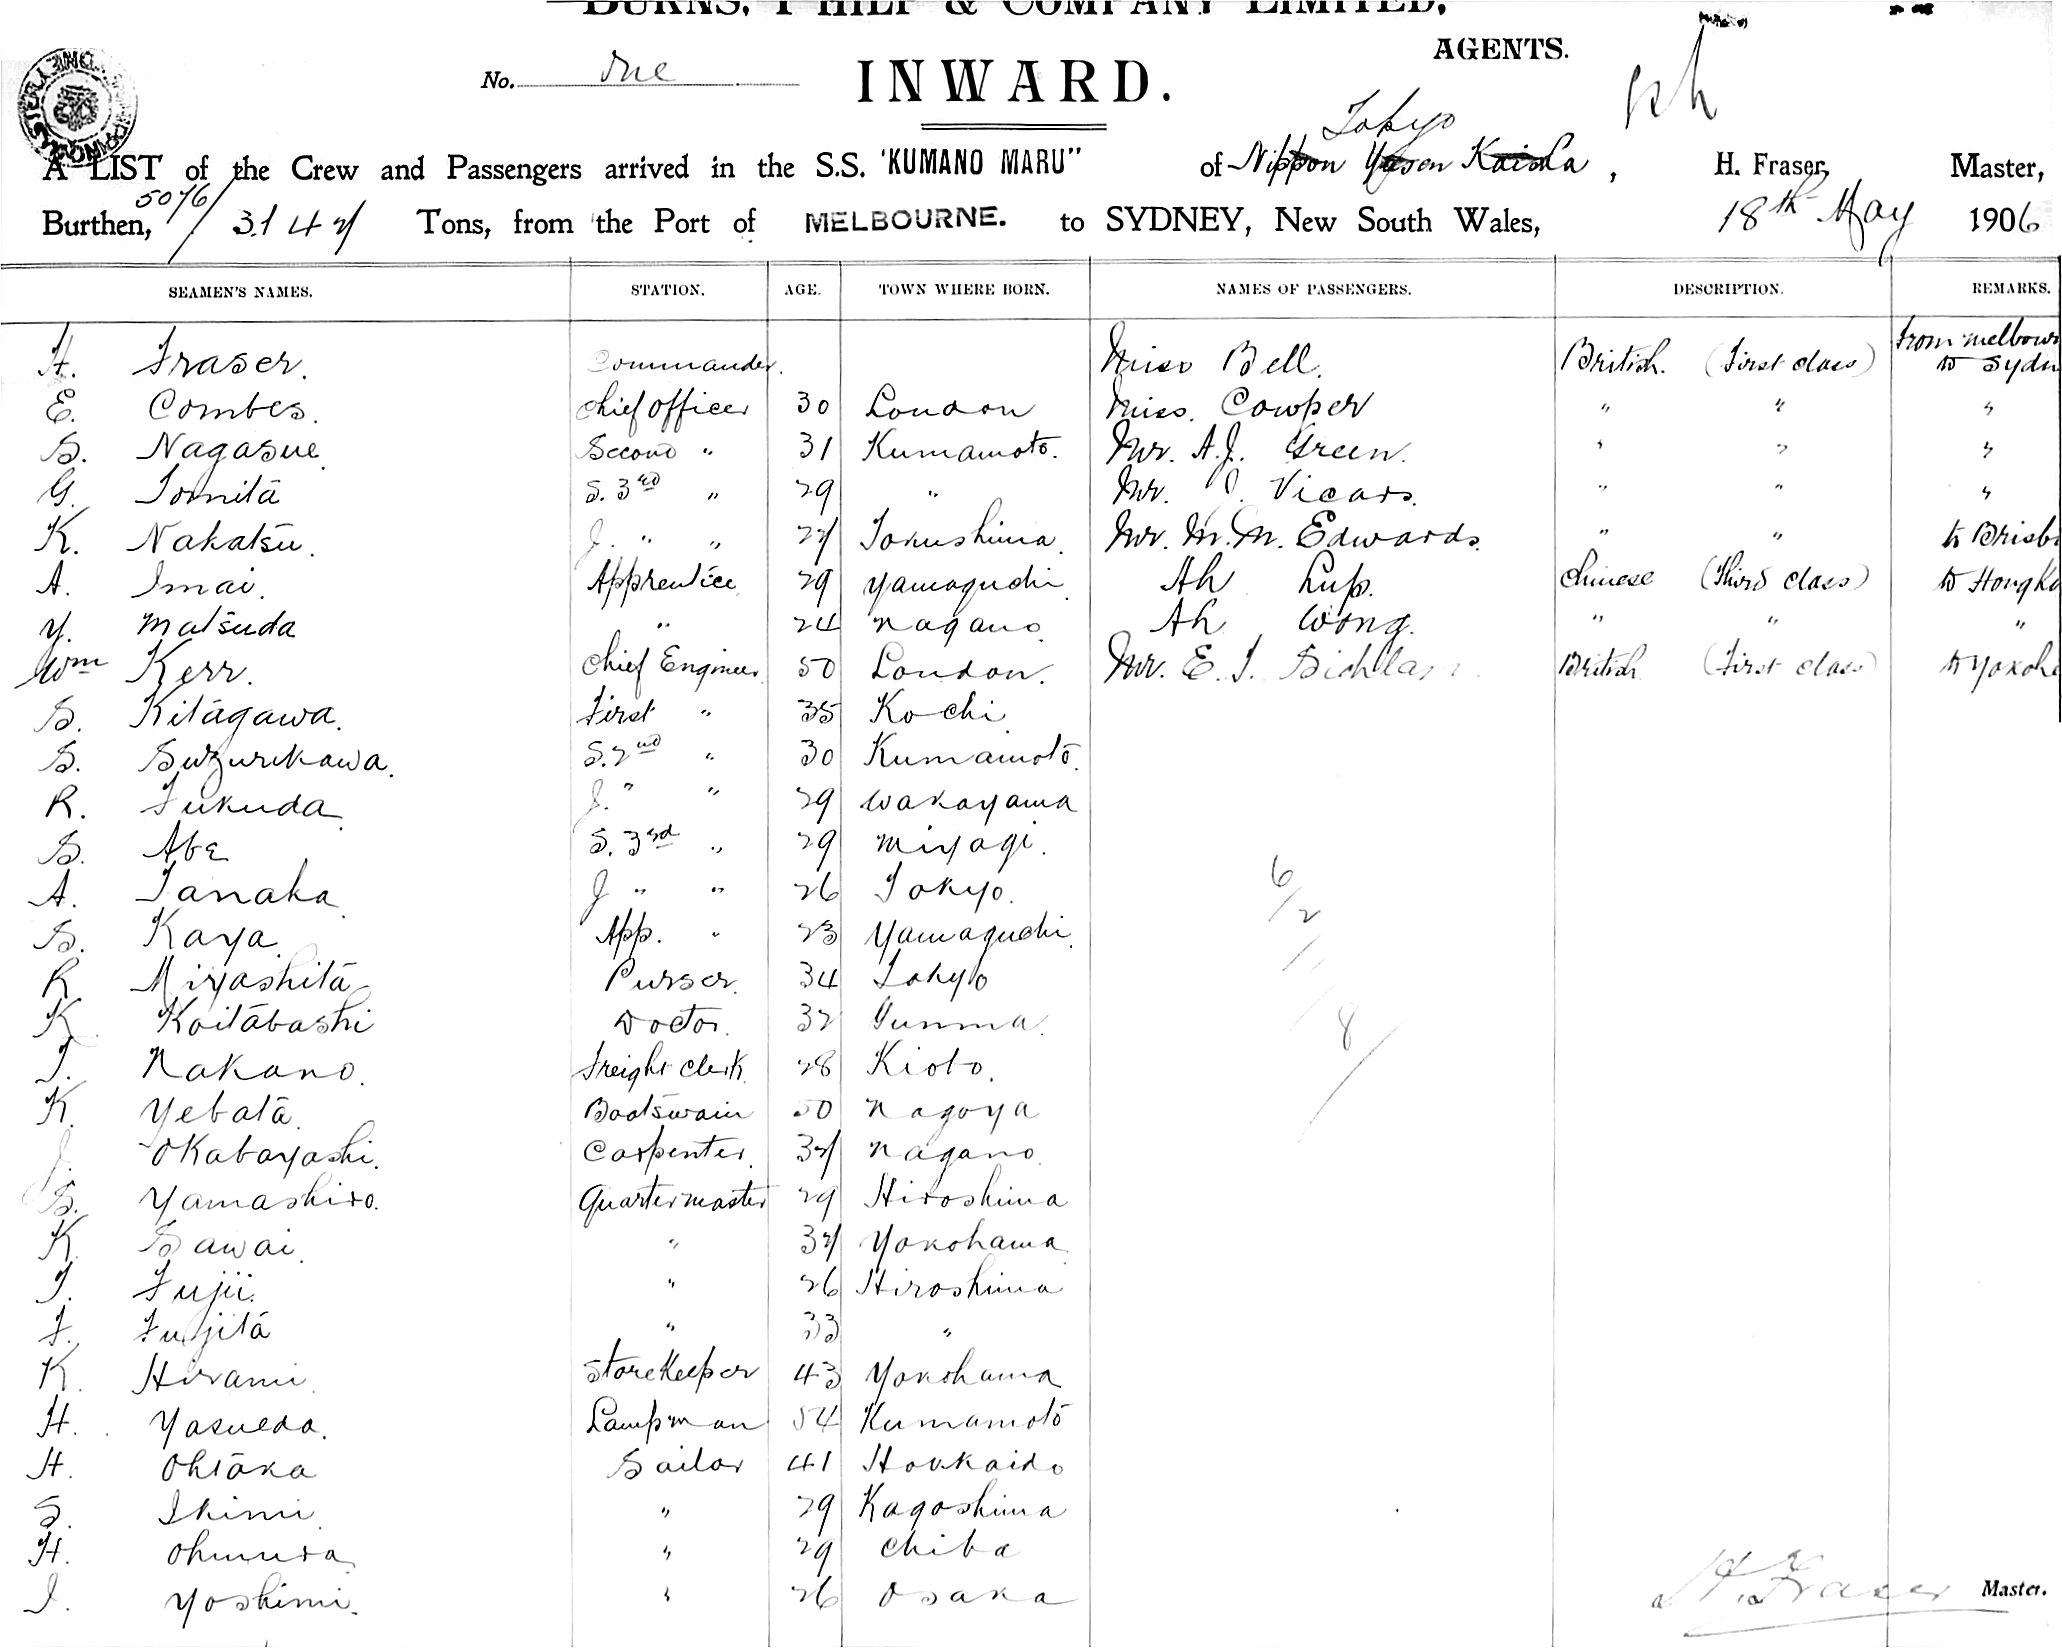 BURNS, PHILP & COMPANY LIMITED,
AGENTS.
No. One
INWARD.
Tokyo
A LIST of the Crew and Passengers arrived in the S.S. "KUMANO MARU" of Nippon Yusen Kaisha, H. Fraser, Master,
Burthen, 5076/3147 Tons, from the Port of MELBOURNE. to SYDNEY, New South Wales, 18th May 1906
SEAMEN'S NAMES. STATION. AGE. TOWN WHERE BORN. NAMES OF PASSENGERS. DESCRIPTION. REMARKS.
H. Fraser. Commander. Miss Bell. British. (First class) From Melbour to Sydn
E. Combes. Chief Officer 30 London Miss. Cowper " " "
S. Nagasue. Second " 31 Kumamoto. Mr. A.J. Green. " " "
G. Tomita S. 3rd " 29 " Mr. J. Vicars. " " "
K. Nakatsu. J. " " 27 Tokushima. Mr. M.M. Edwards. " " to Brisb
A. Imai. Apprentice 29 Yamaguchi. Ah Lup. Chinese (Third class) to Hongko
Y. Matsuda " 24 Nagano. Ah Wong. " " "
Wm Kerr. Chief Engineer 50 London. Mr. E. J. British (First class) to Yokoha
S. Kitagawa. First " 35 Kochi
S. Suzurikawa. S. 2nd " 30 Kumamoto.
R. Fukuda. J. " " 29 Wakayama
S. Abe S. 3rd " 29 Miyagi.
A. Tanaka. J " " 26 Tokyo.
S. Kaya. App. " 23 Yamaguchi.
R Miyashita Purser. 34 Tokyo
K. Koitabashi Doctor. 32 Gunma.
T. Nakano. Freight Clerk. 28 Kioto.
K. Yebata. Boatswain 50 Nagoya
J. Okabayashi. Carpenter. 37 Nagano.
S. Yamashiro. Quartermaster 29 Hiroshima
K. Sawai. " 37 Yokohama
T. Fujii. " 26 Hiroshima
F. Fujita " 33 "
K. Hirami. Storekeeper 43 Yokohama
H. Yasueda. Lampman 54 Kumamoto
H. Ohtaka Sailor 41 Hokkaido
S. Ikimi. " 29 Kagoshima
H. Ohmura " 29 Chiba
I. Yoshimi. " 26 Osaka
6/2
8
H. Fraser Master.